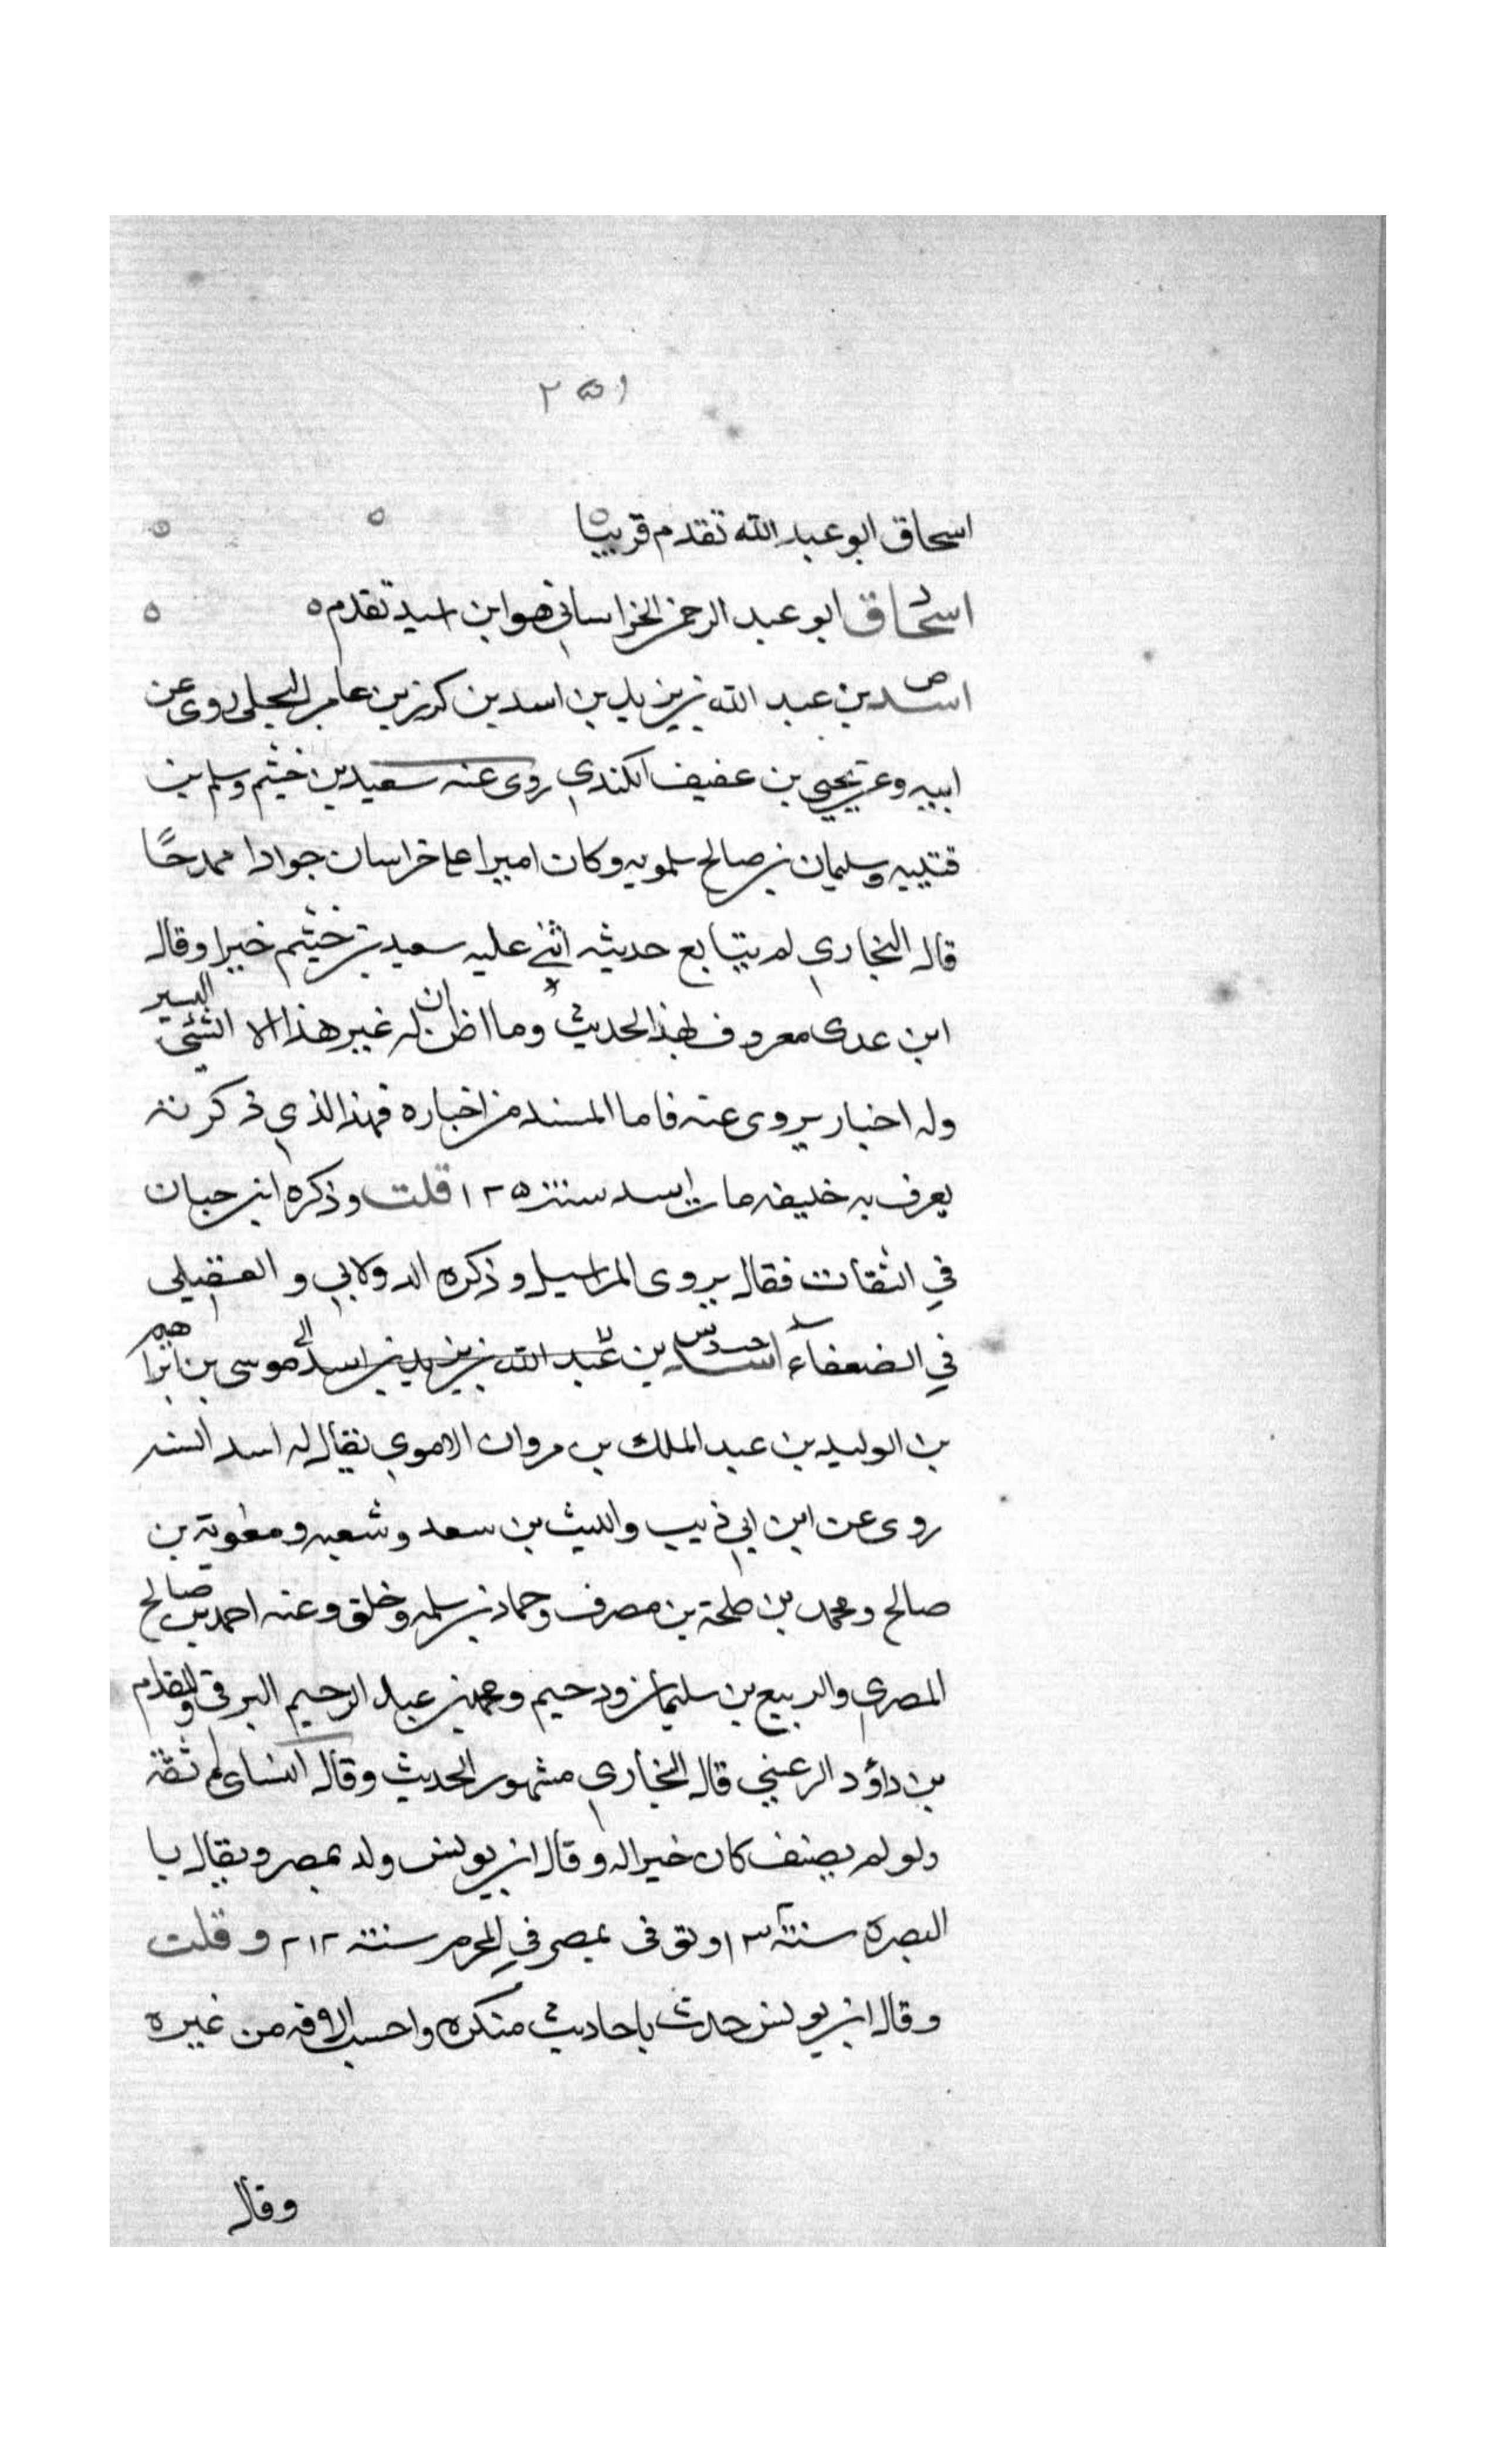 ٢٥١
اسحاق ابو عبد الله تقدم قريبا
اسحاق ابو عبد الرحمن الخراساني هو ابن اسيد تقدم
ص
اسد بن عبد الله بن يزيد بن اسد بن كرز بن عامر البجلي روى عن
ابيه وعن يحيى بن عفيف الكندي روى عنه سعيد بن خثيم وسلم بن
قتيبه وسليمان بن صالح سلمويه وكان اميرا على خراسان جوادا ممدحًا
قال البخاري لم يتابع حديثه اثنى عليه سعيد بن خثيم خيرا وقال
ابن عدى معروف بهذا الحديث وما اظن ان له غير هذا الا الشئ اليسير
وله اخبار يروى عنه فاما المسند من اخباره فهذا الذي ذكرته
يعرف به خليفه مات اسد سنة ١٢٥ قلت وذكره ابن حبان
في الثقات فقال يروى المراسيل وذكره الدولابي و العقيلي
في الضعفاء اسد بن عبد الله بن يزيد بن اسد موسى بن ابراهيم
بن الوليد بن عبد الملك بن مروان الاموي يقال له اسد السنه
روى عن ابن ابي ذيب والليث بن سعد وشعبه ومعوية بن
صالح ومحمد بن طلحة بن مصرف وحماد بن سلمه وخلق وعنه احمد بن صالح
المصري والربيع بن سليمان ودحيم ومحمد بن عبد الرحيم البرقي والمقدام
بن داؤد الرعيني قال البخاري مشهور الحديث وقال النساى ثقة
ولو لم يصنف كان خيرا له وقال ابن يونس ولد بمصر ويقال با
البصرة سنة ١٣ وتوفى بمصر في المحرم سنة ٢١٢ و قلت
وقال ابن يونس حدث باحاديث منكره واحسب الافه من غيره
وقال